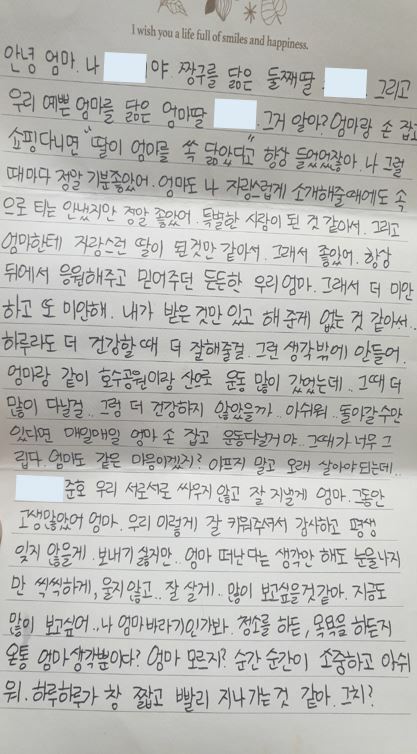 I wish you a life full of smiles and happiness.
안녕 엄마. 나 야 짱구를 닮은 둘째딸 그리고
우리 예쁜 엄마를 닮은 엄마딸 . 그거 알아? 엄마랑 손 잡고
쇼핑다니면 "딸이 엄마를 쏙 닮았다고" 항상 들었었잖아. 나 그럴
때마다 정말 기분좋았어. 엄마도 나 자랑스럽게 소개해줄때에도 속
으로 티는 안냈지만 정말 좋았어. 특별한 사람이 된 것 같아서. 그리고
엄마한테 자랑스런 딸이 된것만 같아서. 그래서 좋았어. 항상
뒤에서 응원해주고 믿어주던 든든한 우리엄마. 그래서 더 미안
하고 또 미안해. 내가 받은 것만 있고 해 준게 없는 것 같아서..
하루라도 더 건강할때 더 잘해줄걸. 그런 생각밖에 안들어.
엄마랑 같이 호수공원이랑 산으로 운동 많이 갔었는데.. 그때 더
많이 다닐걸.. 그럼 더 건강하지 않았을까.. 아쉬워. 돌아갈수만
있다면 매일매일 엄마 손 잡고 운동다닐거야. 그때가 너무 그
립다. 엄마도 같은 마음이겠지? 아프지 말고 오래 살아야 되는데..
준호 우리 서로서로 싸우지 않고 잘 지낼게 엄마. 그동안
고생많았어 엄마. 우리 이렇게 잘 키워주셔서 감사하고 평생
잊지 않을게. 보내기 싫지만.. 엄마 떠난다는 생각만 해도 눈물나지
만 씩씩하게, 울지않고.. 잘 살게.. 많이 보고싶을것같아. 지금도
많이 보고싶어..나 엄마바라기인가봐. 청소를 하든, 목욕을 하든지
온통 엄마생각뿐이다? 엄마 모르지? 순간 순간이 소중하고 아쉬
워. 하루하루가 참 짧고 빨리 지나가는것 같아. 그치?